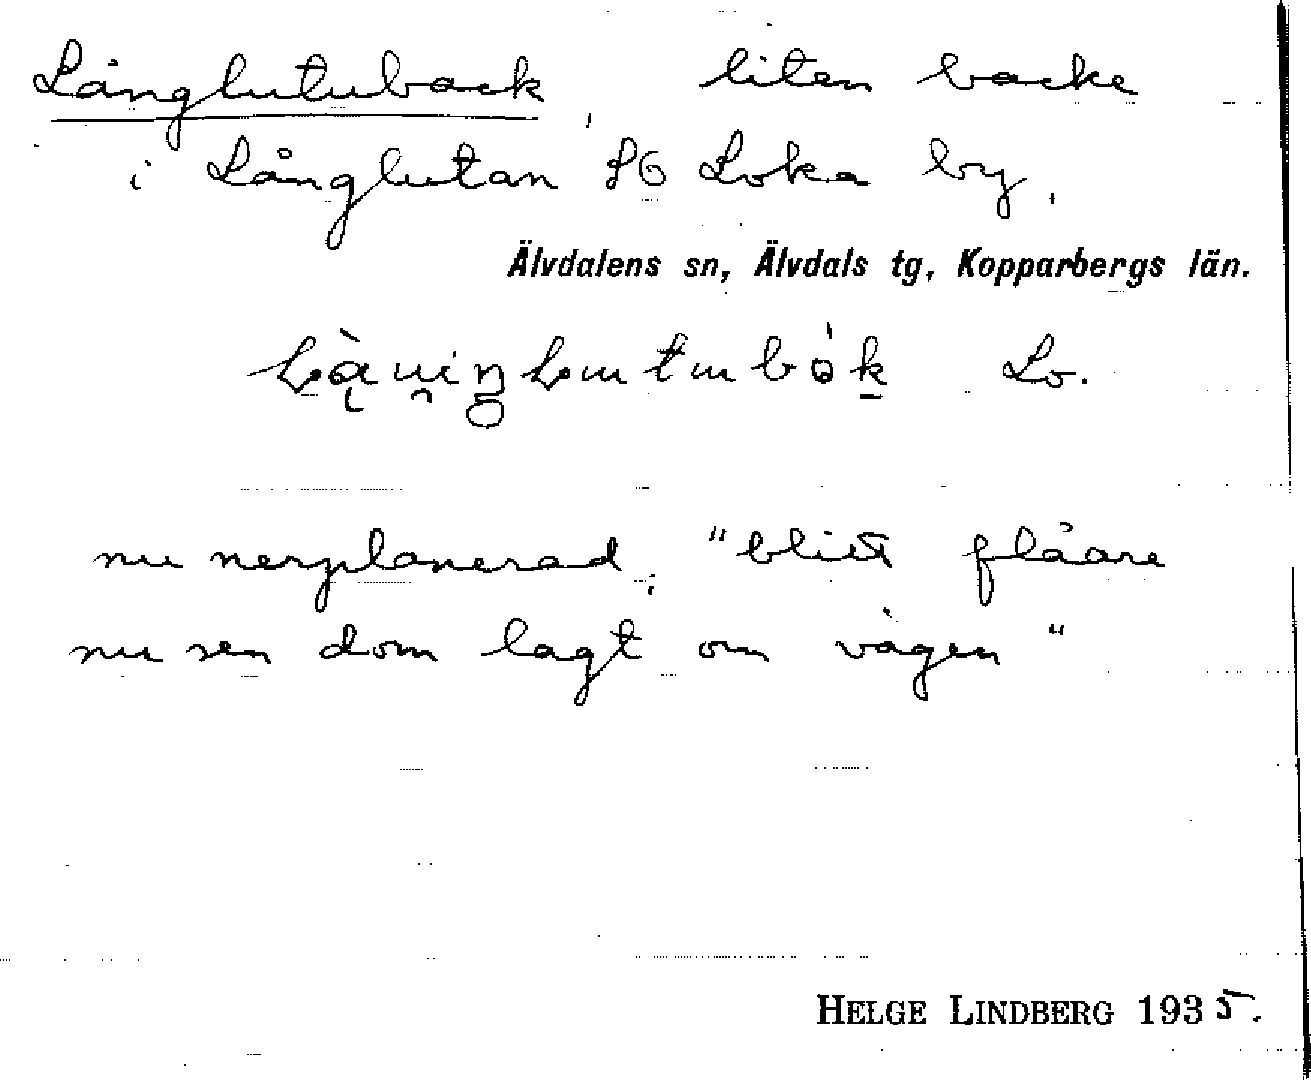 Långlutuback, liten backe
i Långlutan SO Loka by,
Älvdalens sn, Älvdals tg, Kopparbergs län.
Lo.
nu nerplanerad; "blivit flåare
nu sen dom lagt om vägen"
HELGE LINDBERG 1935.